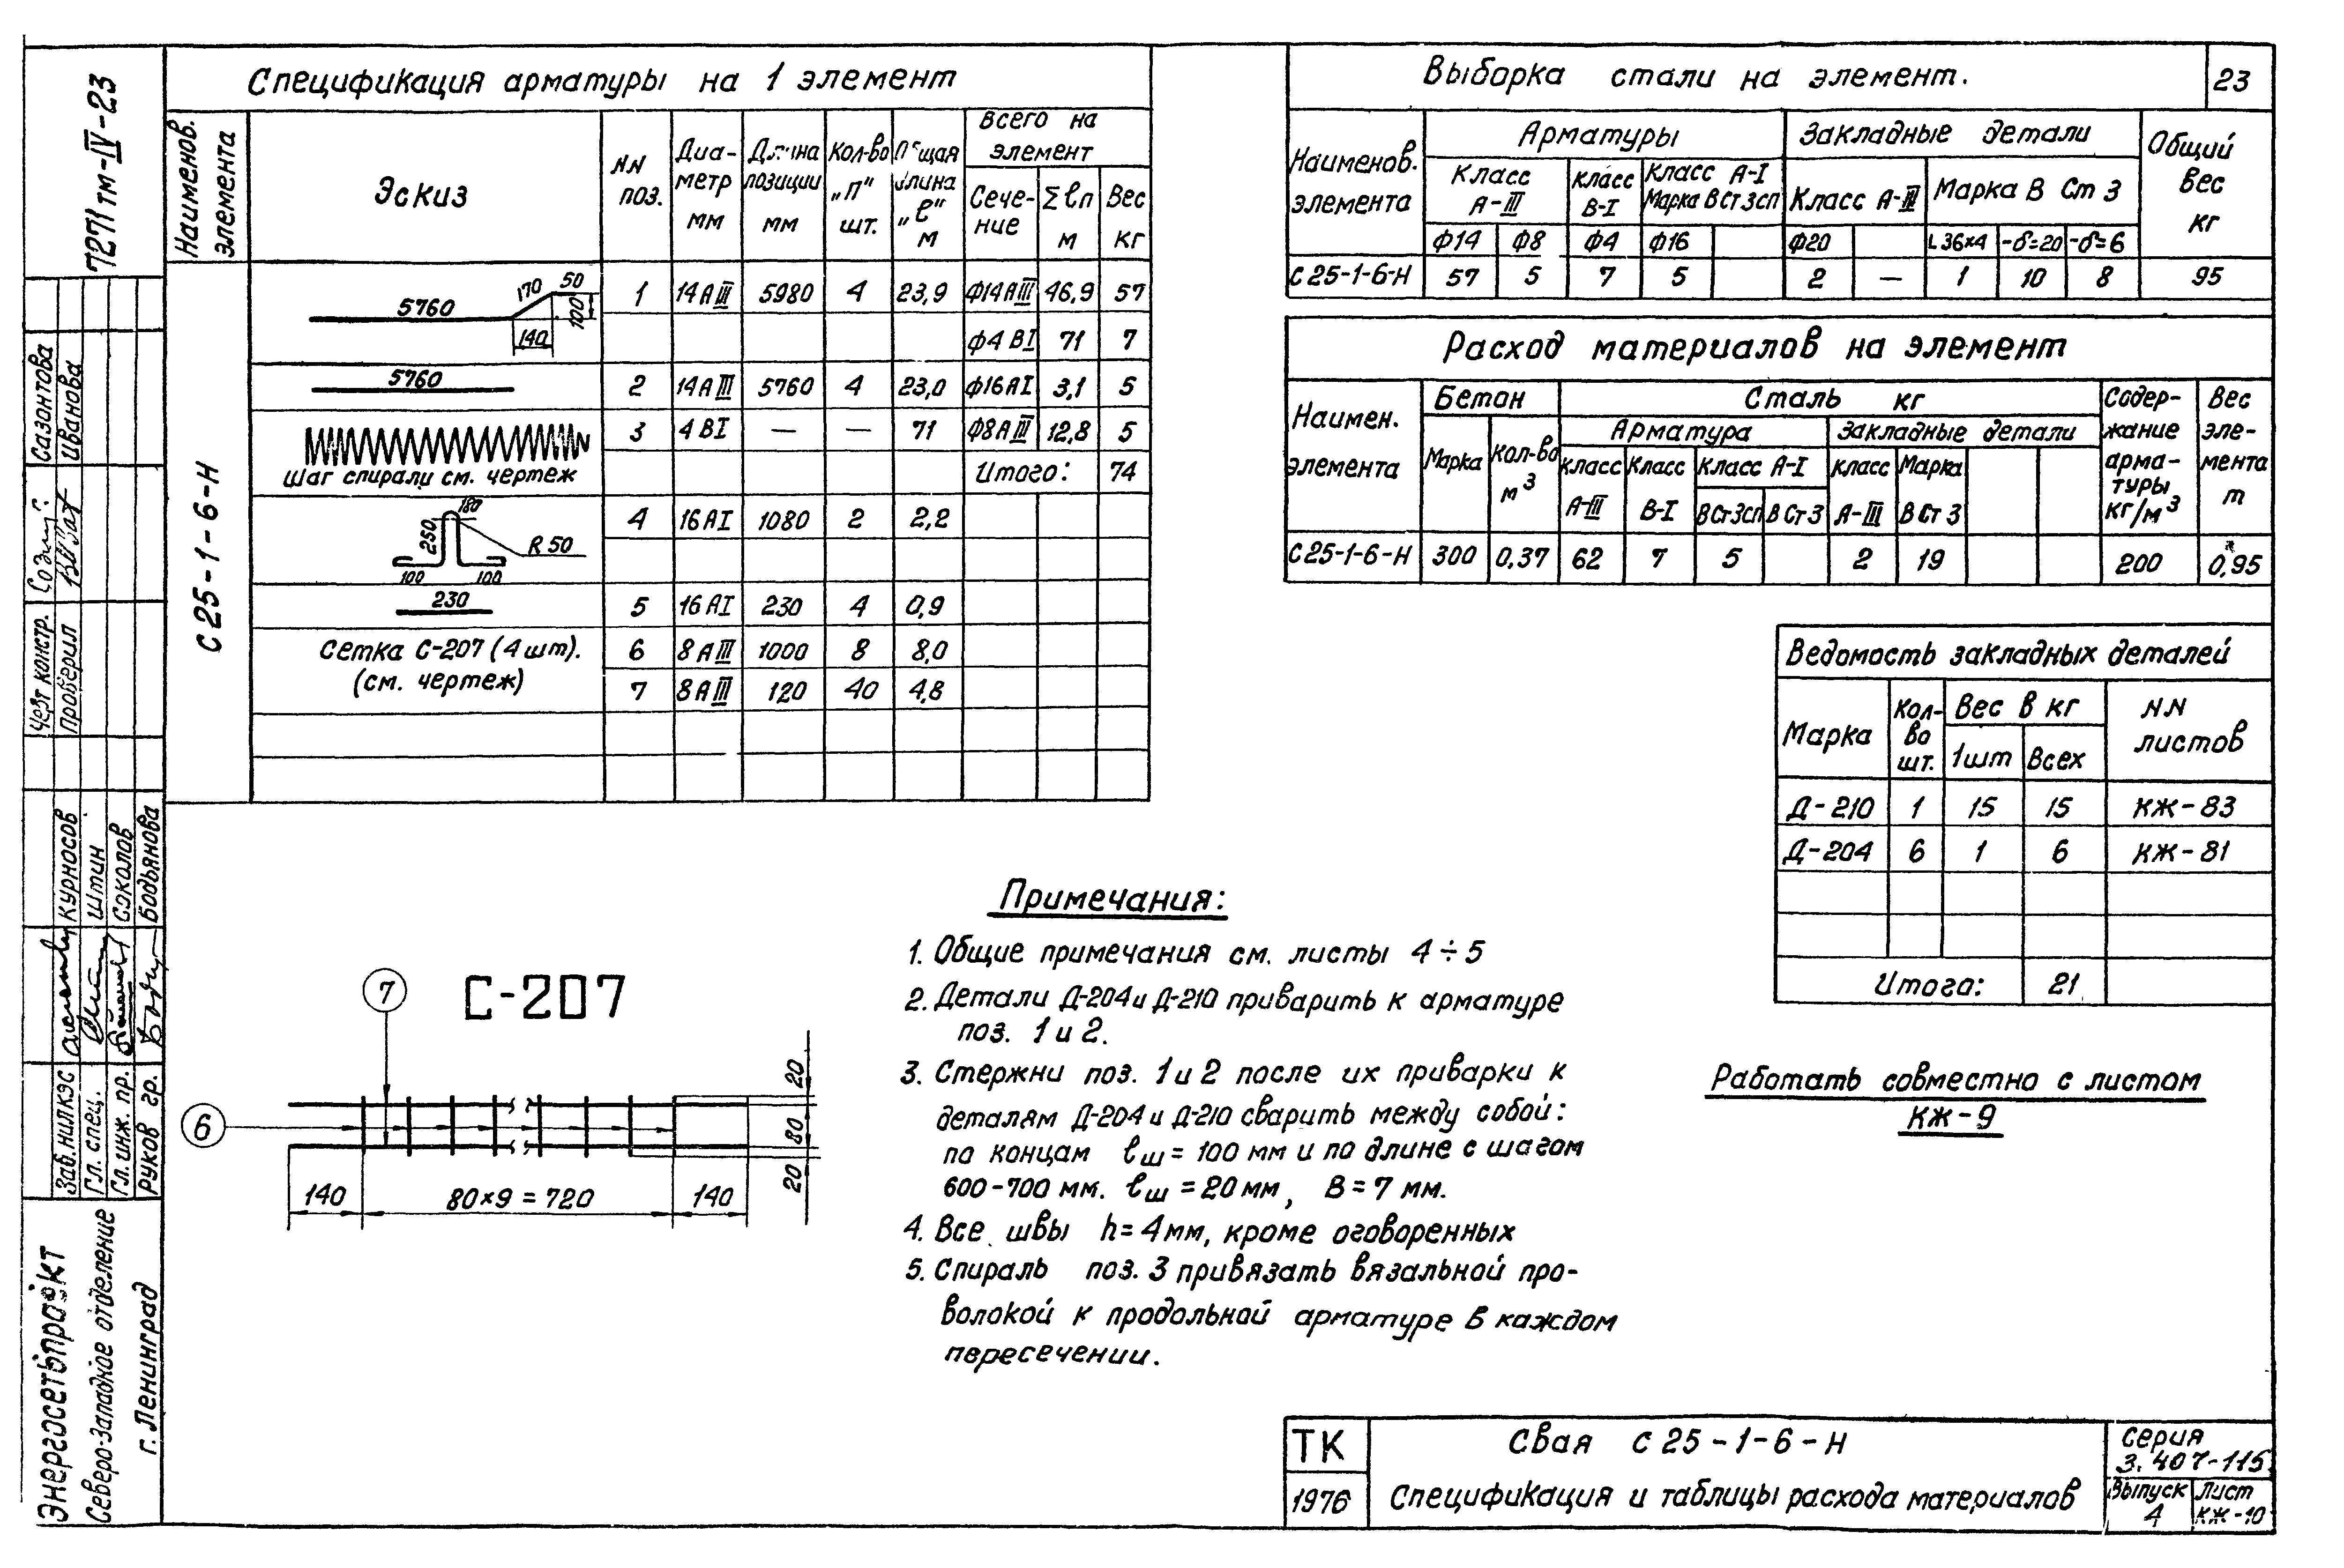 Спецификация арматуры на 1 элемент
Наименов. элемента
Эскиз
NN поз.
Диаметр мм
Длина позиции мм
Кол-во „п" шт.
длина „ℓ" м
Всего на элемент
Сече-ние
Σℓп м
Вес кг
С 25-1-6-Н
5760 170 50 100 140
1 14АIII 5980 4 23,9 Ф14АIII 46,9 57
Ф4 ВI 71 7
5760
2 14АIII 5760 4 23,0 Ф16АI 3,1 5
3 4ВI — — 71 Ф8АIII 12,8 5
Шаг спирали см. чертеж
Итого: 74
180 250 R50 100 100
4 16АI 1080 2 2,2
230
5 16АI 230 4 0,9
Сетка С-207 (4 шт).
(см. чертеж)
6 8АIII 1000 8 8,0
7 8АIII 120 40 4,8
Выборка стали на элемент.
23
Наименов. элемента
Арматуры
Закладные детали
Общий вес кг
Класс А-III
Класс В-I
Класс А-I Марка ВСт3сп
Класс А-III
Марка В Ст 3
Ф14 Ф8 Ф4 Ф16 Ф20 L36×4 -δ=20 -δ=6
С 25-1-6-Н 57 5 7 5 2 — 1 10 8 95
Расход материалов на элемент
Наимен. элемента
Бетон
Сталь кг
Содер-жание арма-туры кг/м³
Вес эле-мента т
Марка
Кол-во м³
Арматура
Закладные детали
Класс А-III
Класс В-I
Класс А-I
ВСт3сп
ВСт3
Класс А-III
Марка ВСт3
С 25-1-6-Н 300 0,37 62 7 5 2 19 200 0,95
Ведомость закладных деталей
Марка
Кол-во шт.
Вес в кг
1шт Всех
NN листов
Д-210 1 15 15 КЖ-83
Д-204 6 1 6 КЖ-81
Итого: 21
Работать совместно с листом
КЖ-9
С-207
7
6
20 80 20
140 80×9=720 140
Примечания:
1. Общие примечания см. листы 4÷5
2. Детали Д-204 и Д-210 приварить к арматуре
поз. 1 и 2.
3. Стержни поз. 1 и 2 после их приварки к
деталям Д-204 и Д-210 сварить между собой:
по концам ℓш=100 мм и по длине с шагом
600-700 мм. ℓш=20мм, В=7 мм.
4. Все швы h=4мм, кроме оговоренных
5. Спираль поз. 3 привязать вязальной про-
волокой к продольной арматуре в каждом
пересечении.
ТК
1976
Свая С 25-1-6-Н
Спецификация и таблицы расхода материалов
Серия
3.407-115
Выпуск
4
Лист
КЖ-10
7271тм-IV-23
Сазонтова
Иванова
констр.
Проверил
Курносов
Штин
Соколов
Бодьянова
Зав.НИЛКЭС
Гл. спец.
Гл. инж. пр.
Руков гр.
Энергосетьпроект
Северо-Западное отделение
г. Ленинград